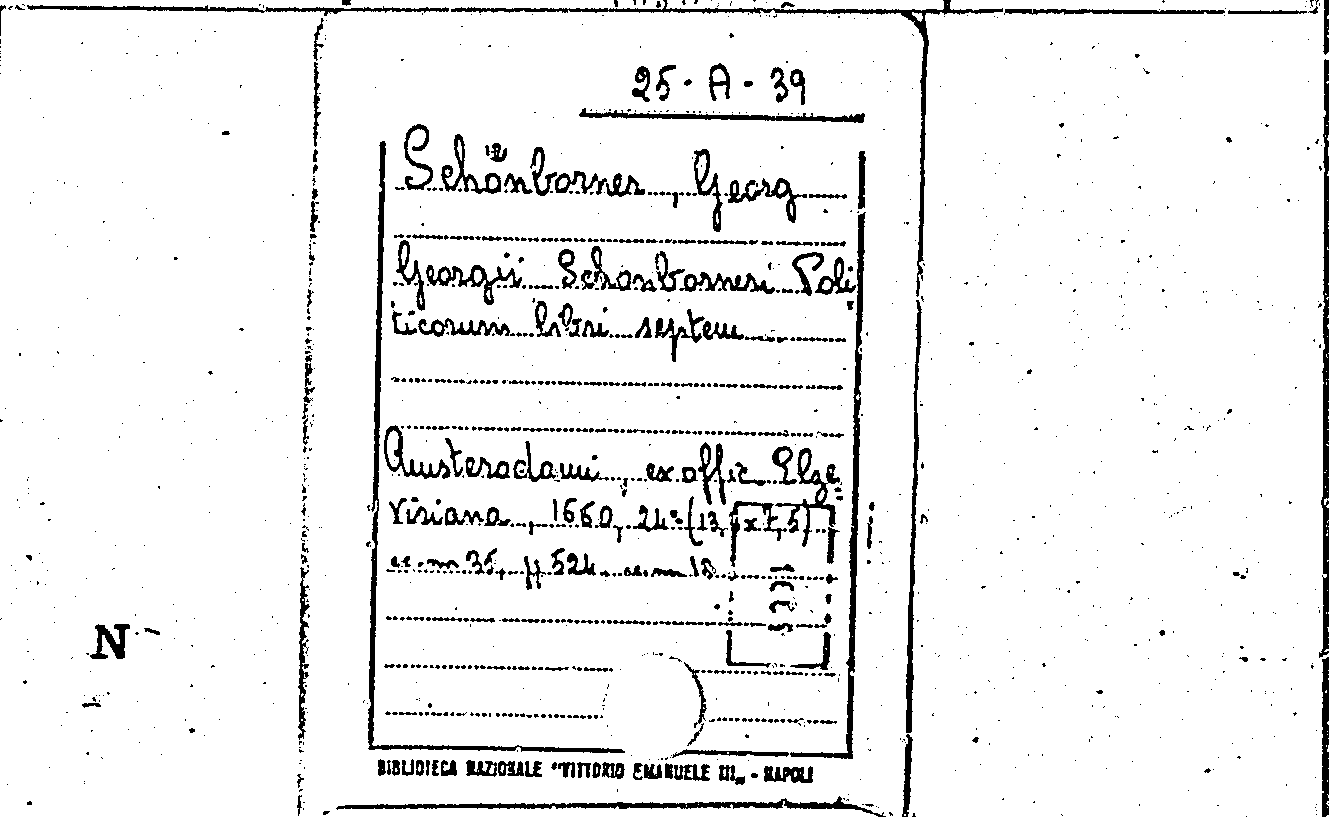 25-A-39
Schönborner, Georg
Georgii Schonborneri Poli
ticorum libri septem
Amsterodami, ex offic. Elze
viriana, 1660, 24° (13, x7,5)
cc. nn 35, pp 524, cc. nn 18
N
BIBLIOTECA NAZIONALE "VITTORIO EMANUELE III" - NAPOLI